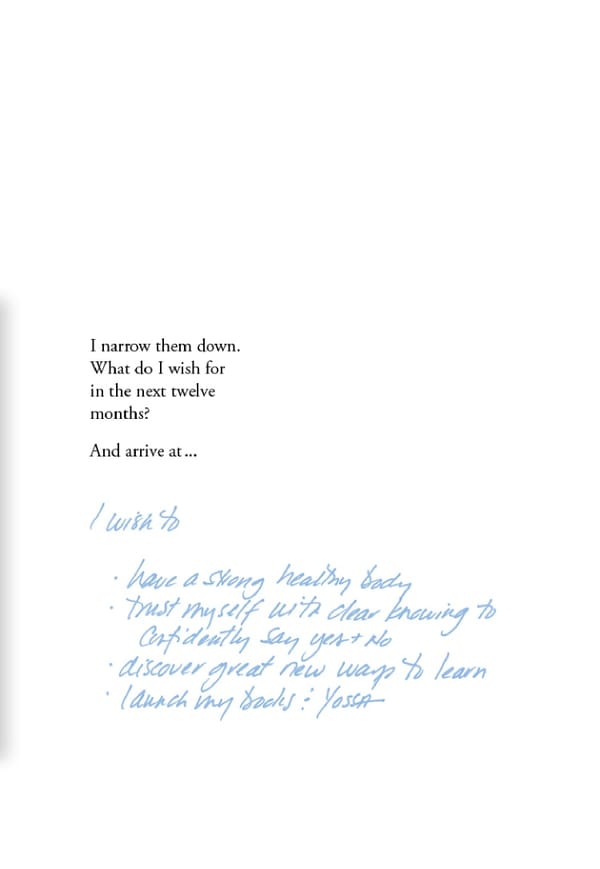 I narrow them down.
What do I wish for
in the next twelve
months?
And arrive at ...
I wish to
· have a strong healthy body
· trust myself with clear knowing to
confidently say yes + No
· discover great new ways to learn
· launch my books : YOSSA